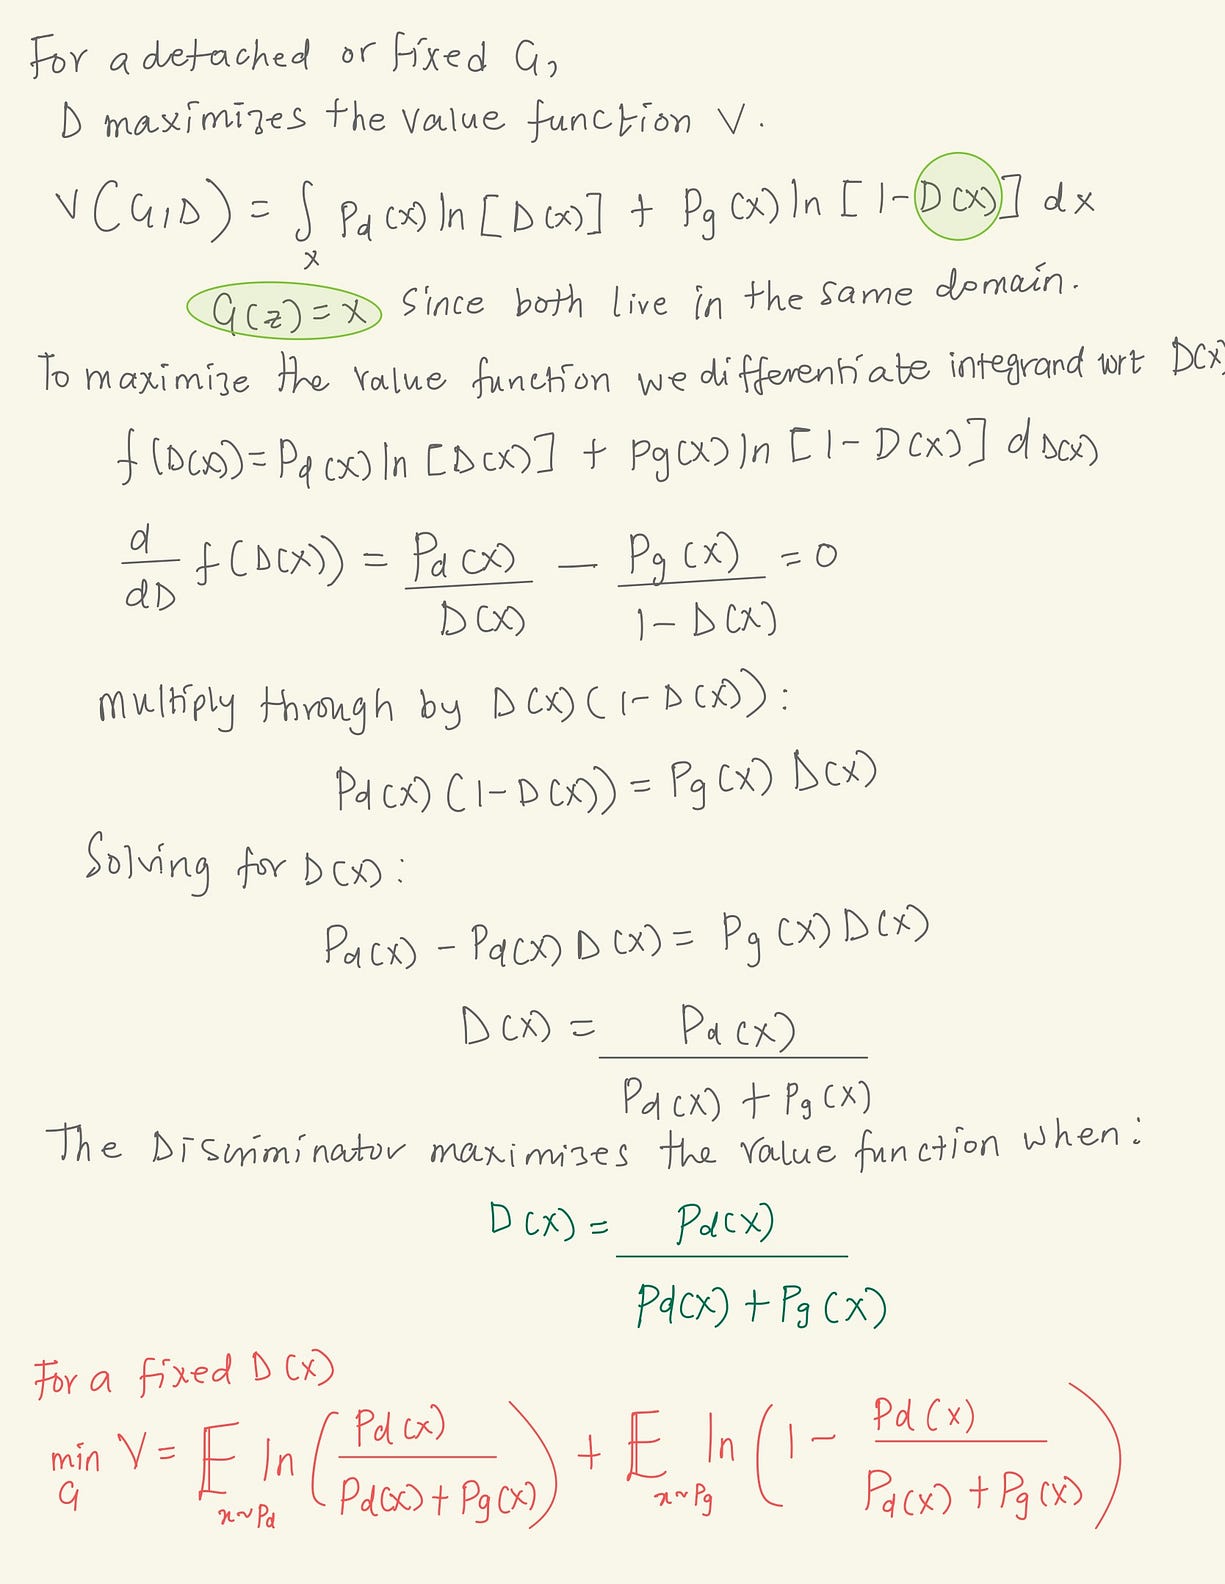 For a detached or fixed G,
D maximizes the value function V.
V(G,D) = ∫ₓ Pd(x) ln [D(x)] + Pg(x) ln [1-D(x)] dx
G(z)=x since both live in the same domain.
To maximize the value function we differentiate integrand wrt D(x)
f(D(x)) = Pd(x) ln [D(x)] + Pg(x) ln [1-D(x)] dD(x)
d/dD f(D(x)) = Pd(x)/D(x) - Pg(x)/(1-D(x)) = 0
multiply through by D(x)(1-D(x)):
Pd(x)(1-D(x)) = Pg(x) D(x)
Solving for D(x):
Pd(x) - Pd(x) D(x) = Pg(x) D(x)
D(x) = Pd(x)/(Pd(x) + Pg(x))
The Discriminator maximizes the value function when:
D(x) = Pd(x)/(Pd(x) + Pg(x))
For a fixed D(x)
min_G V = E_{x~Pd} ln (Pd(x)/(Pd(x) + Pg(x))) + E_{x~Pg} ln (1 - Pd(x)/(Pd(x) + Pg(x)))